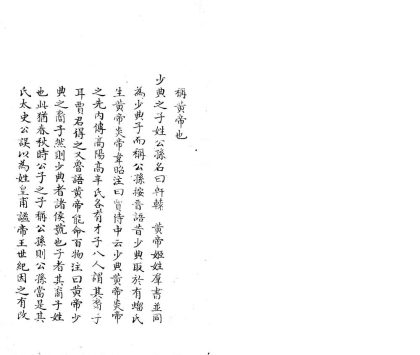 稱黃帝也
少典之子姓公孫名曰軒轅　黃帝姬姓羣書並同
為少典子而稱公孫按晉語昔少典取於有蟜氏
生黃帝炎帝韋昭注曰賈侍中云少典黃帝炎帝
之先內傳高陽高辛氏各有才子八人謂其裔子
耳賈君得之又魯語黃帝能命百物注曰黃帝少
典之裔子然則少典者諸侯號也子者其裔子姓
也此猶春秋時公子之子稱公孫則公孫當是其
氏太史公誤以為姓皇甫謐帝王世紀因之有改